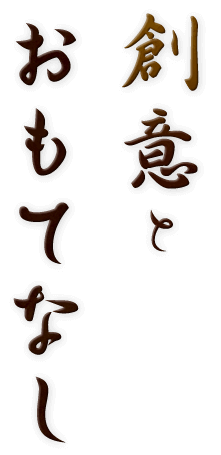 創意と
おもてなし